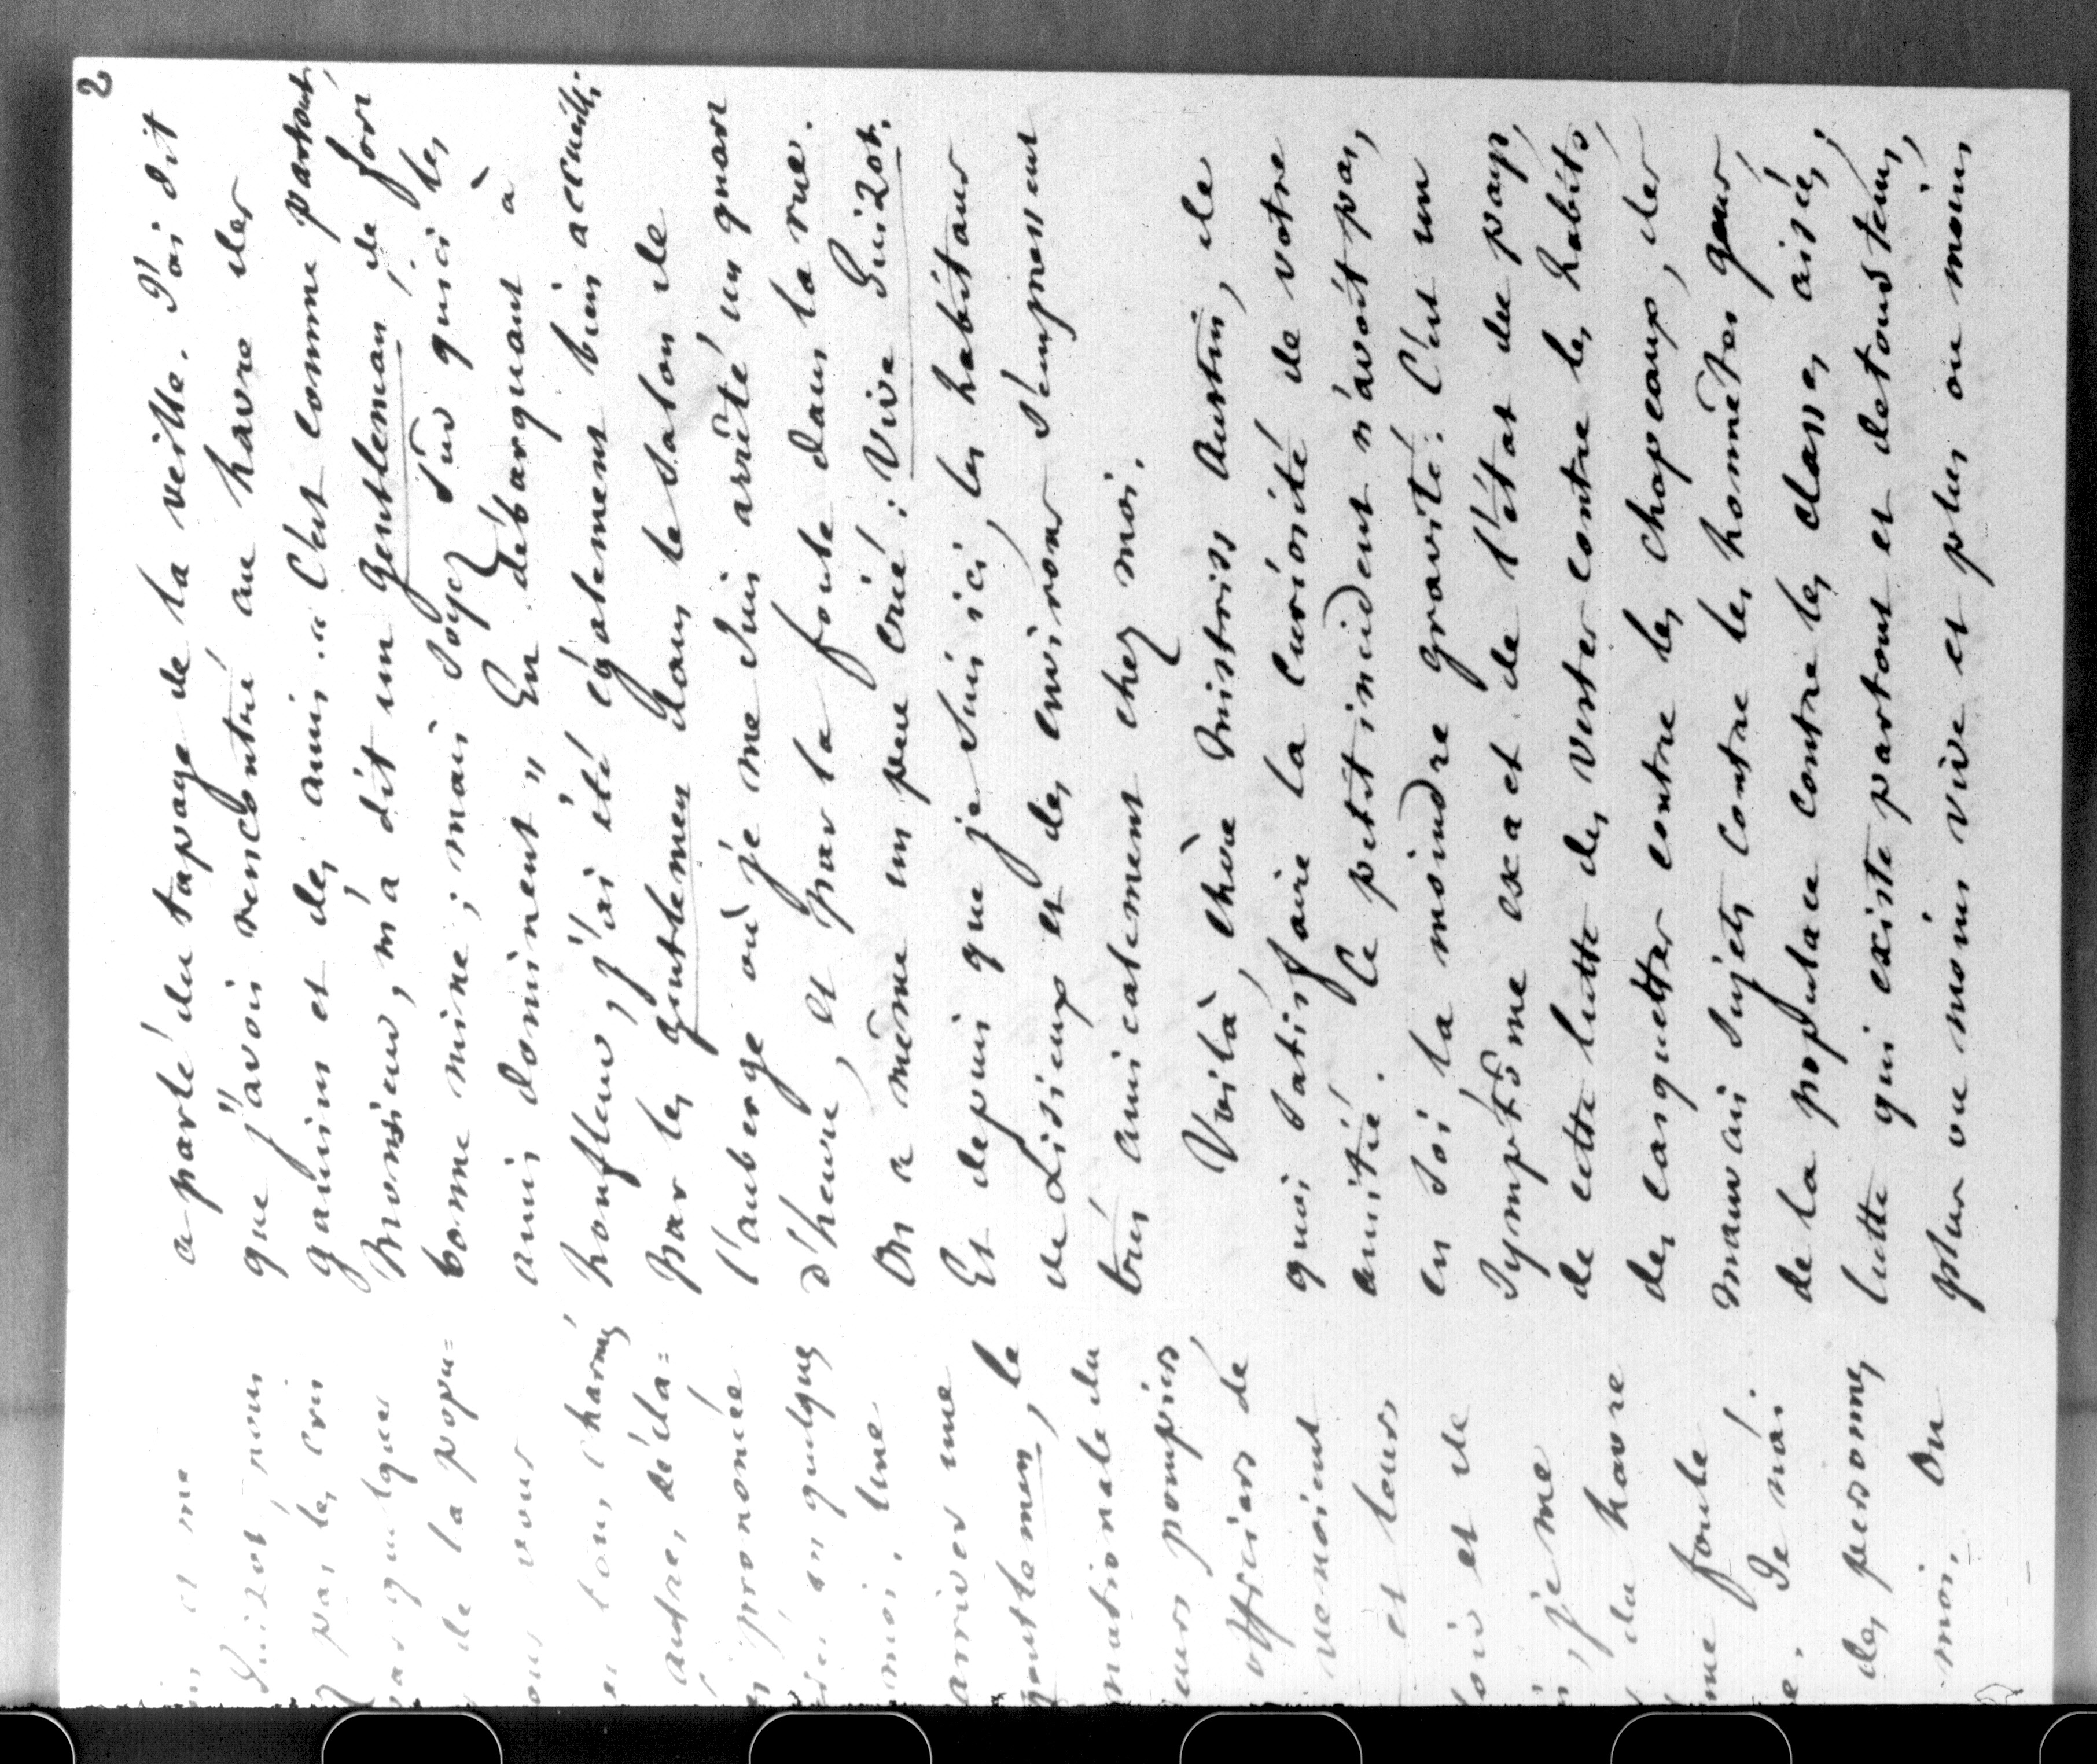 2
me
Guizot, nous
pas les cris
quelques
de la popu=
vous
tous, charmés
autre, décla=
prononcée
en quelques
moi. Une
arriver une
gentlemen, le
nationale du
pompiers,
officiers de
venoient
et leurs
et de
je me
du havre
foule
Je n'ai
des personnes
moi. On
a parlé du tapage de la veille. J'ai dit
que j'avois rencontré au havre des
gamins et des amis. « C'est comme partout,
Monsieur, m'a dit un gentleman de fort
bonne mine ; mais soyez sûr qu'ici les
amis dominent » En débarquant à
honfleur, j'ai été également bien accueilli,
par les gentlemen dans le salon de
l'auberge où je me suis arrêté un quart
d'heure, et par la foule dans la rue.
On a même un peu crié : Vive Guizot.
Et depuis que je suis ici, les habitans
de Lisieux et des environs s'empressent
très amicalement chez moi.
Voilà, chère Mistriss Austin, de
quoi satisfaire la curiosité de votre
amitié. Ce petit incident n'avoit pas,
en soi la moindre gravité. C'est un
symptôme exact de l'état du pays,
de cette lutte des vestes contre les habits,
des casquettes contre les chapeaux, des
mauvais sujets contre les honnêtes gens,
de la populace contre les classes aisées,
lutte qui existe partout et de tous tems,
plus ou moins vive et plus ou moins